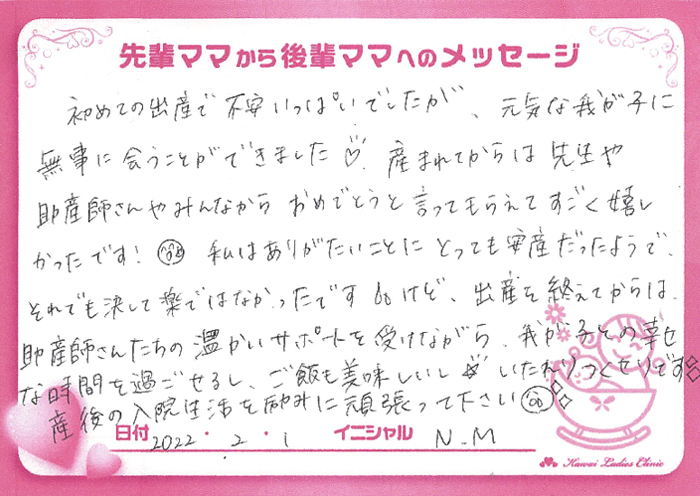 先輩ママから後輩ママへのメッセージ
初めての出産で不安いっぱいでしたが、元気な我が子に
無事に会うことができました♡ 産まれてからは先生や
助産師さんやみんなから おめでとうと言ってもらえてすごく嬉し
かったです! 私はありがたいことに とっても安産だったようで、
それでも決して楽ではなかったですけど、出産を終えてからは、
助産師さんたちの温かいサポートを受けながら、我が子との幸せ
な時間を過ごせるし、ご飯も美味しいし いたれりつくせりです
産後の入院生活を励みに頑張って下さい
日付 2022・2・1 イニシャル N.M
Kawai Ladies Clinic